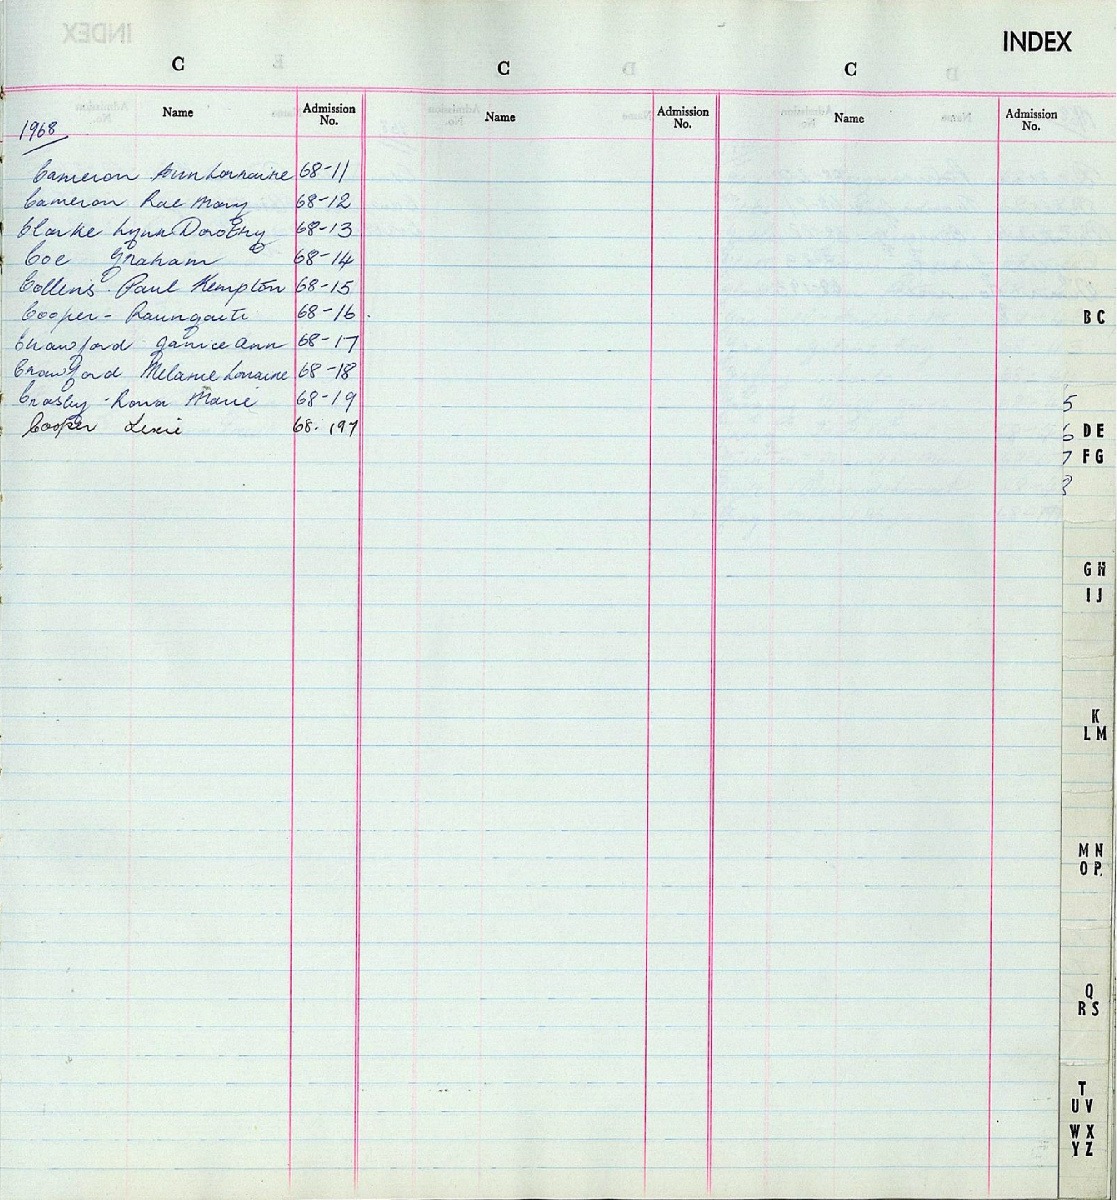 INDEX
C C C
Name Admission No. Name Admission No. Name Admission No.
1968
Cameron Ann Lorraine 68-11
Cameron Rae Mary 68-12
Clarke Lynn Dorothy 68-13
Coe Graham 68-14
Collens Paul Kempton 68-15
Cooper - 68-16
Crawford Janice Ann 68-17
Crawford Melanie Lorraine 68-18
Crosby - Marie 68-19
Cooper Lexie 68. 197
B C
5
6 D E
7 F G
8
G H
I J
K
L M
M N
O P.
Q
R S
T
U V
W X
Y Z